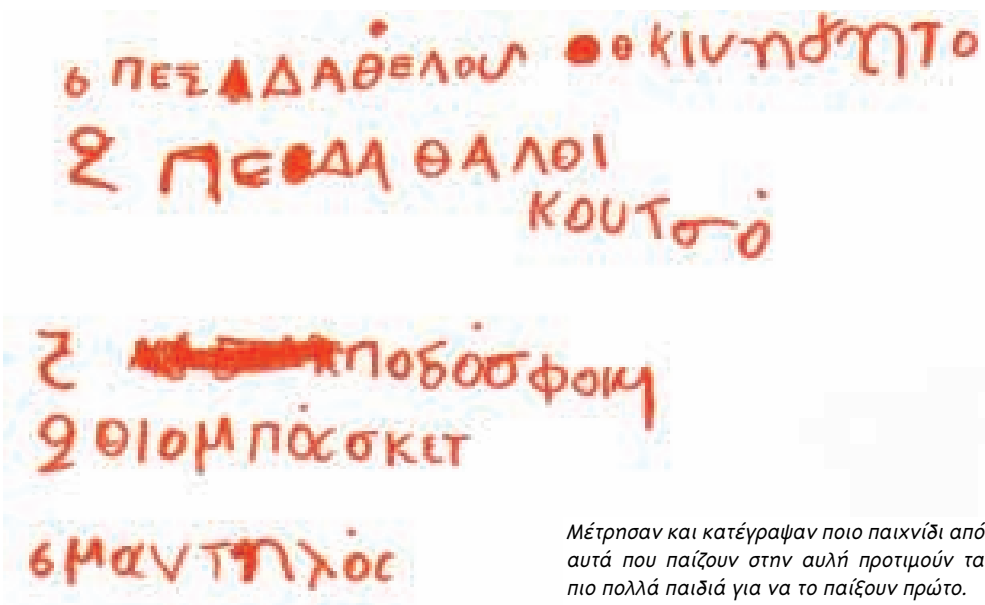 6 ΠΕΣΔΑΘΕΛΟυΝ κινηδητΟ
2 ΠΕΔΑ ΘΑΛΟΙ
κουτσό
2 ποδόσφοιρη
2 ΘΙΟΜπάσκετ
6 μαντηλός
Μέτρησαν και κατέγραψαν ποιο παιχνίδι από
αυτά που παίζουν στην αυλή προτιμούν τα
πιο πολλά παιδιά για να το παίξουν πρώτο.